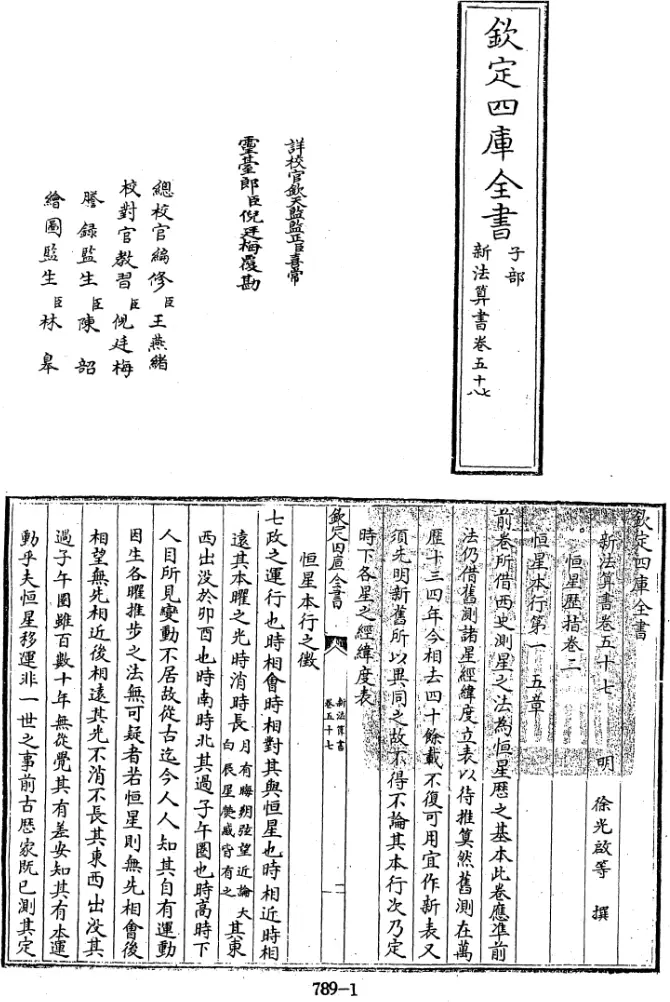 欽定四庫全書
子部
新法算書卷五十七
八
詳校官欽天監監正臣喜常
靈臺郎臣倪廷梅覆勘
總校官編修臣王燕緒
校對官教習臣倪廷梅
謄錄監生臣陳韶
繪圖監生臣林臯
欽定四庫全書
新法算書卷五十七 明 徐光啟等 撰
恒星歴指卷二
恒星本行第一五章
前卷所借西史測星之法為恒星歴之基本此卷應準前
法仍借舊測諸星經緯度立表以待推算然舊測在萬
歴十三四年今相去四十餘載不復可用宜作新表又
須先明新舊所以異同之故不得不論其本行次乃定
時下各星之經緯度表
欽定四庫全書
新法算書
卷五十七
一
恒星本行之徵
七政之運行也時相會時相對其與恒星也時相近時相
遠其本曜之光時消時長月有晦朔弦望近論太白辰星熒惑皆有之其東
西出沒於卯酉也時南時北其過子午圈也時高時下
人目所見變動不居故從古迄今人人知其自有運動
因生各曜推步之法無可疑者若恒星則無先相會後
相望無先相近後相遠其光不消不長其東西出沒其
過子午圈雖百數十年無從覺其有差安知其有本運
動乎夫恒星移運非一世之事前古歴家既已測其定
789-1